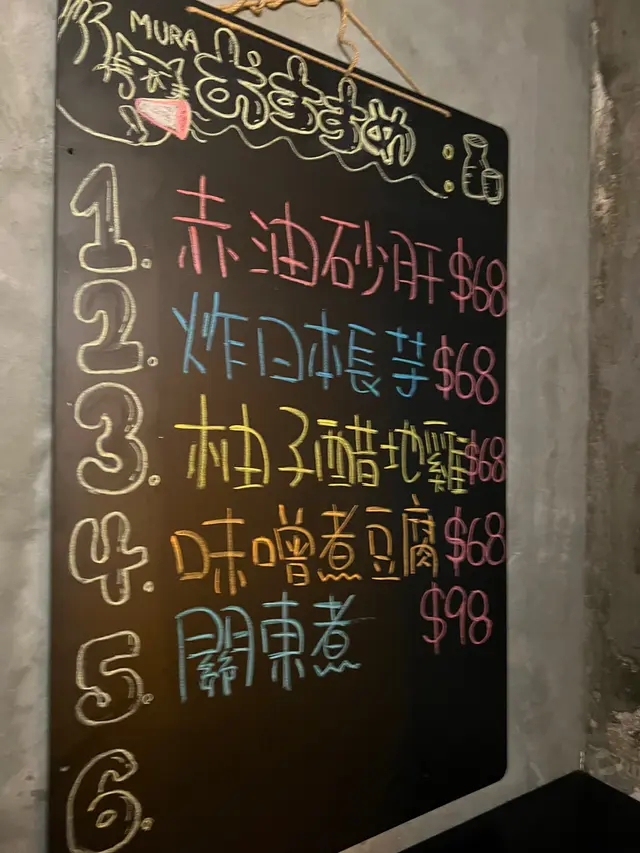 MURA
おすすめ:
1. 赤油砂肝 $68
2. 炸日本長芋 $68
3. 柚子醋地雞 $68
4. 味噌煮豆腐 $68
5. 關東煮 $98
6.